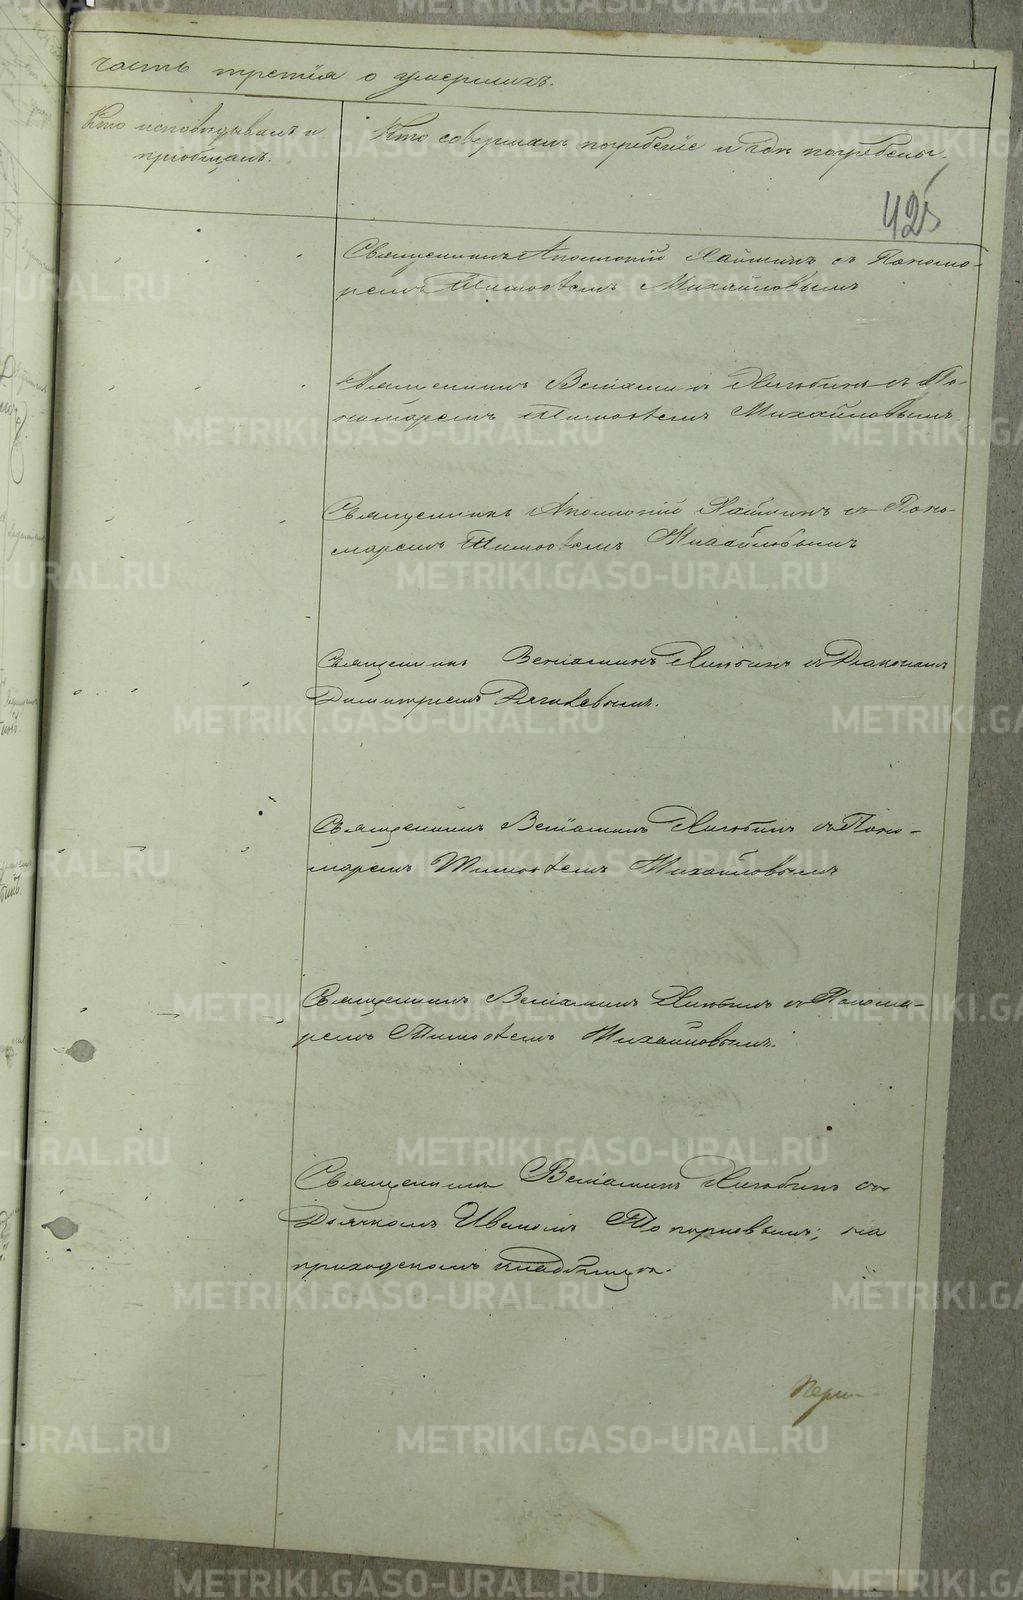 часть третія о умершихъ.
Кто исповѣдывалъ и
пріобщалъ.
Кто совершалъ погребеніе и гдѣ погребены.
425
Священникъ Аполлоній съ Понома-
ремъ Тимоѳеемъ Михайловымъ
Священникъ Веніаминъ съ По-
номаремъ Тимоѳеемъ Михайловымъ
Священникъ Аполлоній съ Поно-
маремъ Тимоѳеемъ Михайловымъ
Священникъ Веніаминъ съ Діакономъ
Димитріемъ
Священникъ Веніаминъ съ Поно-
маремъ Тимоѳеемъ Михайловымъ
Священникъ Веніаминъ съ Понома-
ремъ Тимоѳеемъ Михайловымъ.
Священникъ Веніаминъ со
Дьячкомъ Иваномъ Топорковымъ; на
приходскомъ кладбищѣ.
METRIKI.GASO-URAL.RU